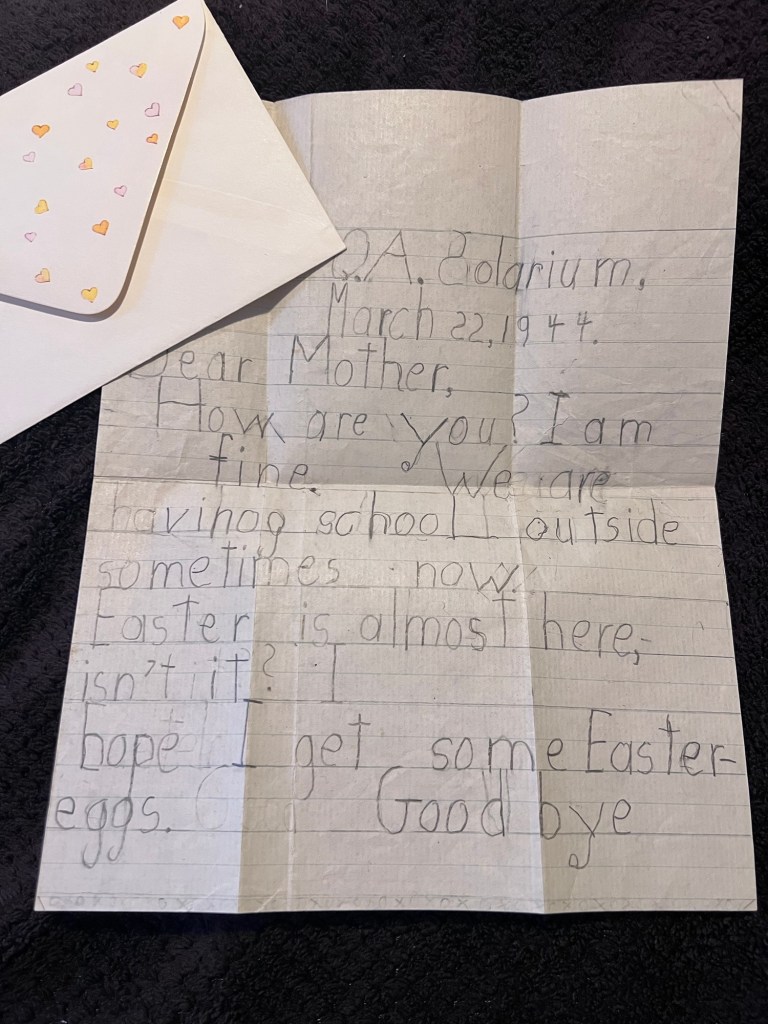 Q.A. Solarium,
March 22, 1944.
Dear Mother,
How are you? I am
fine. We are
having school outside
sometimes now.
Easter is almost here,
isn't it? I
hope I get some Easter-
eggs. Good bye